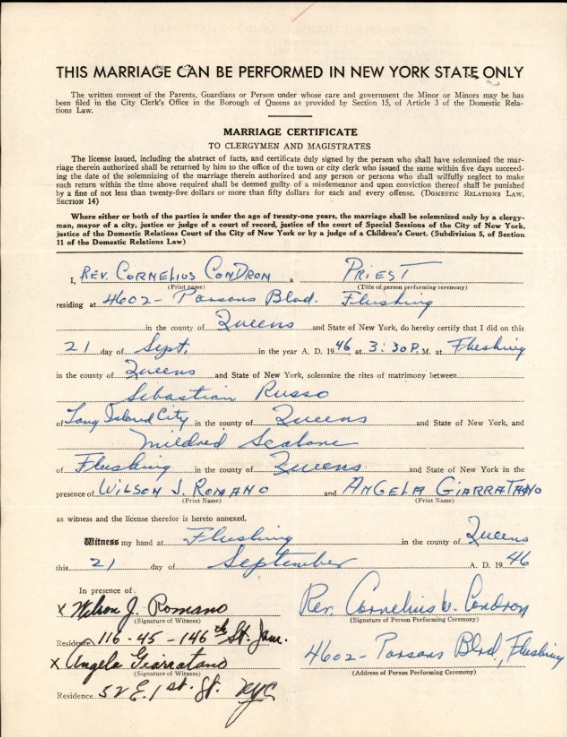 THIS MARRIAGE CAN BE PERFORMED IN NEW YORK STATE ONLY
The written consent of the Parents, Guardians or Person under whose care and government the Minor or Minors may be
been filed in the City Clerk's Office in the Borough of Queens as provided by Section 15, of Article 3 of the Domestic Rela-
tions Law.
MARRIAGE CERTIFICATE
TO CLERGYMEN AND MAGISTRATES
The license issued, including the abstract of facts, and certificate duly signed by the person who shall have solemnized the mar-
riage therein authorized shall be returned by him to the office or city clerk who issued the same within five days succeed-
ing the date of the solemnizing of the marriage therein authorized and any person or persons who shall wilfully neglect to make
such return within the time above required shall be deemed guilty of a misdemeanor and upon conviction thereof shall be punished
by a fine of not less than twenty-five dollars or more than fifty dollars for each and every offense. (DOMESTIC RELATIONS LAW,
SECTION 14)
Where either or both of the parties is under the age of twenty-one years, the marriage shall be solemnized only by a clergy-
man, mayor of a city, justice or judge of a court of record, justice of the court of Special Sessions of the City of New York,
justice of the Domestic Relations Court of the City of New York or by a judge of a Children's Court. (Subdivision 5, of Section
11 of the Domestic Relations Law)
I, REV. CORNELIUS CONDRON a PRIEST
(Print name) (Title of person performing ceremony)
residing at 4602- Parsons Blvd. Flushing
in the county of Queens and State of New York, do hereby certify that I did on this
21 day of Sept. in the year A. D. 1946 at 3:30 P. M. at Flushing
in the county of Queens and State of New York, solemnize the rites of matrimony between
Sebastian Russo
of Long Island City in the county of Queens and State of New York, and
Mildred Scalone
of Flushing in the county of Queens and State of New York in the
presence of WILSON J. ROMANO and ANGELA GIARRATANO
(Print Name) (Print Name)
as witness and the license therefor is hereto annexed.
Witness my hand at Flushing in the county of Queens
this 21 day of September A. D. 1946
In presence of
X Wilson J. Romano Rev. Cornelius C. Condron
(Signature of Witness) (Signature of Person Performing Ceremony)
Residence 116-45-146th St. Jam.
X Angela Giarratano 4602- Parsons Blvd., Flushing
(Signature of Witness) (Address of Person Performing Ceremony)
Residence 52 E. 1st. St. NYC